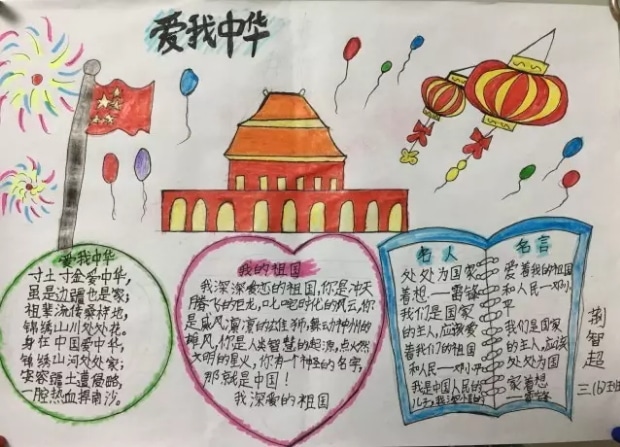 爱我中华
爱我中华
寸土寸金爱中华,
虽是边疆也是家;
祖辈流传桑梓地,
锦绣山川处处花。
身在中国爱中华,
锦绣山河处处家;
安容疆土遭侵略,
一腔热血捍南沙。
我的祖国
我深深爱恋的祖国,你是冲天
腾飞的巨龙,叱咤时代的风云,你
是威风凛凛的雄狮,舞动神州的
雄风,你是人类智慧的起源,点燃
文明的星火,你有一个神圣的名字,
那就是中国!
我深爱的祖国
名人
处处为国家
着想.一雷锋
我们是国家
的主人,应该爱
着我们的祖国
和人民一邓小平
我是中国人民的
名言
爱着我的祖国
和人民一邓小
平
我们是国家
的主人,应该
处处为国
家着想
一雷锋
荆智超
三(6)班